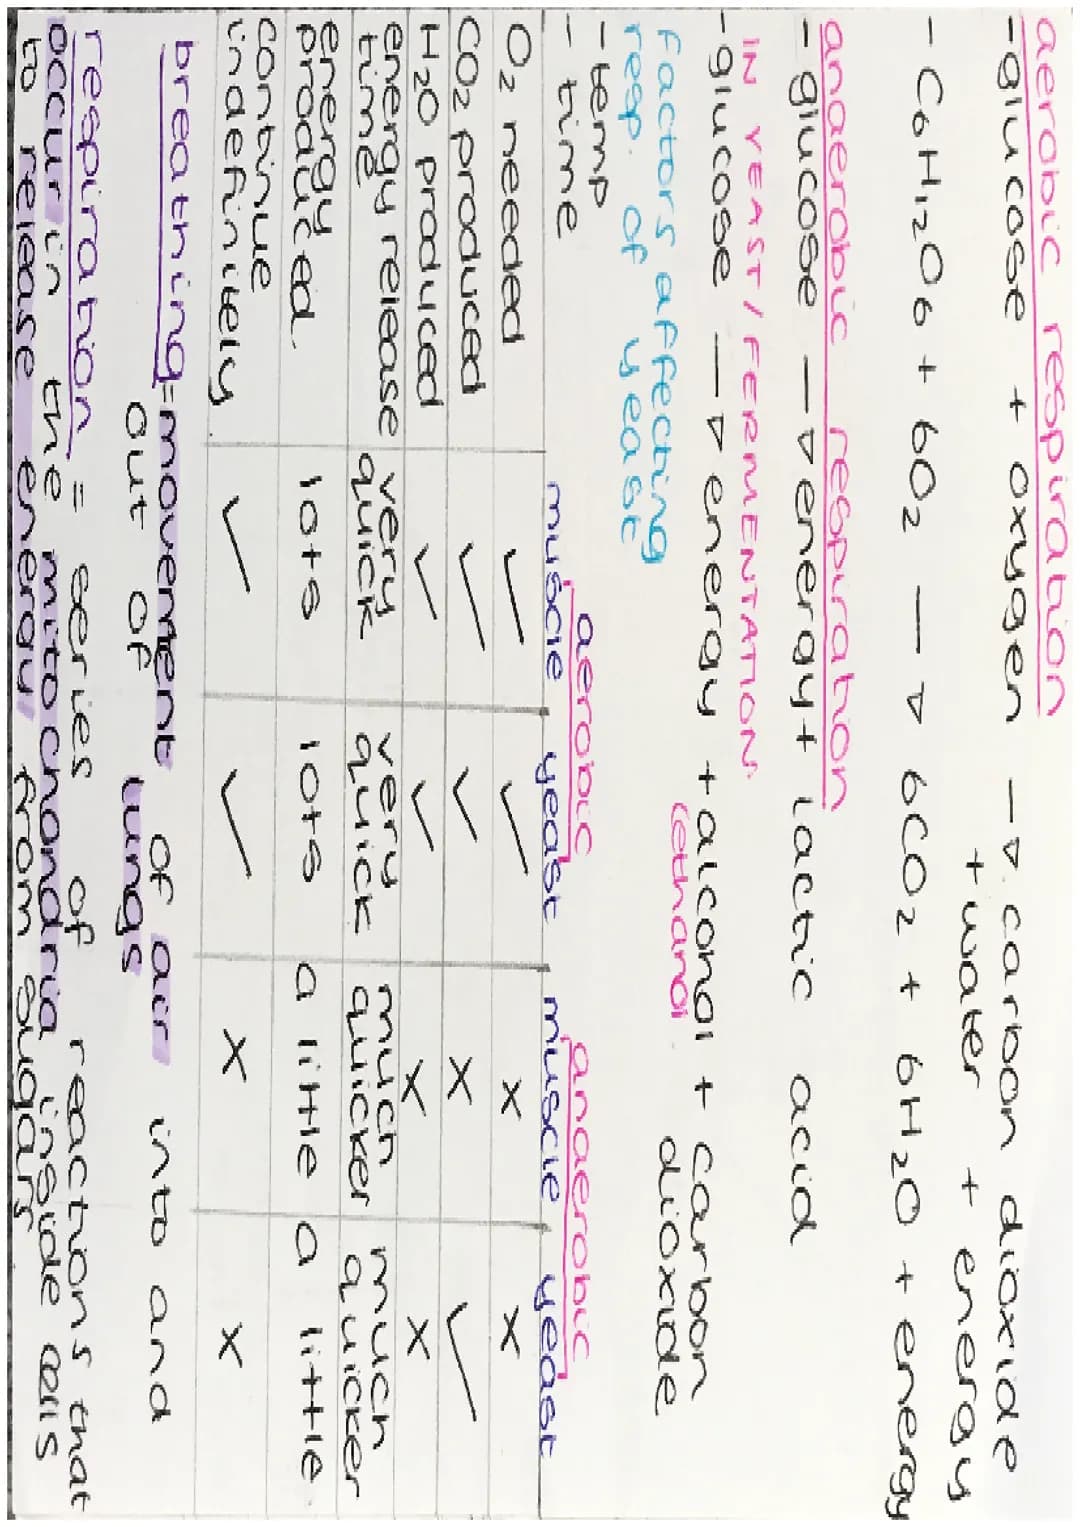 aerobic respiration
-glucose + oxygen —▿ carbon dioxide
+ water + energy
- C6H12O6 + 6O2 —▿ 6CO2 + 6H2O + energy
anaerobic respiration
- glucose —▿ energy + lactic acid
IN YEAST / FERMENTATION
-glucose —▿ energy + alcohol + carbon
(ethanol dioxide
factors affecting
resp. of yeast
- temp
- time
aerobic anaerobic
muscle yeast muscle yeast
O2 needed ✓ ✓ x x
CO2 produced ✓ ✓ x ✓
H2O produced ✓ ✓ x x
energy release very very much much
time quick quick quicker quicker
energy
produced. lots lots a little a little
continue
indefinitely. ✓ ✓ x x
breathing = movement of air into and
out of lungs
respiration = series of reactions that
occur in the mitochondria inside cells
to release energy from sugars